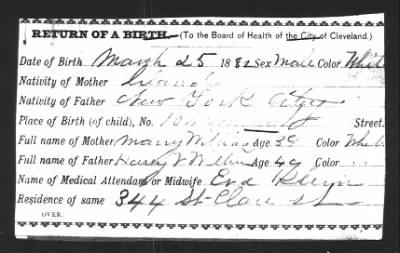 RETURN OF A BIRTH.—(To the Board of Health of the City of Cleveland.)
Date of Birth March 25 1882 Sex Male Color White
Nativity of Mother
Nativity of Father New York City
Place of Birth (of child), No. Street.
Full name of Mother Mary Age 38 Color White
Full name of Father Age 49 Color
Name of Medical Attendant or Midwife
Residence of same 344 St Clair St
OVER.